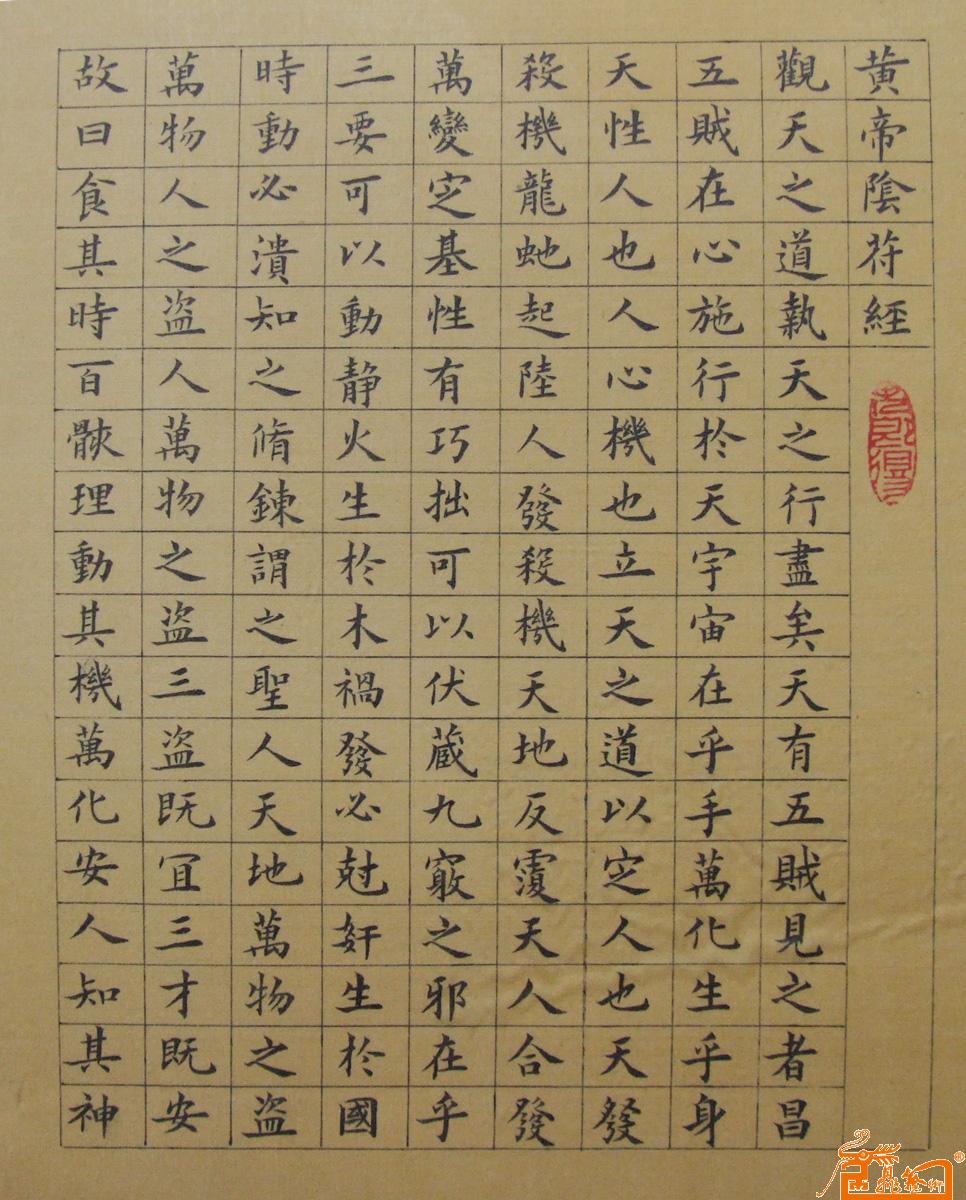 黄帝陰符經
觀天之道執天之行盡矣天有五賊見之者昌
五賊在心施行於天宇宙在乎手萬化生乎身
天性人也人心機也立天之道以定人也天發
殺機龍虵起陸人發殺機天地反覆天人合發
萬變定基性有巧拙可以伏蔵九竅之邪在乎
三要可以動静火生於木禍發必尅奸生於國
時動必潰知之脩鍊謂之聖人天地萬物之盜
萬物人之盜人萬物之盜三盜既宜三才既安
故曰食其時百骸理動其機萬化安人知其神